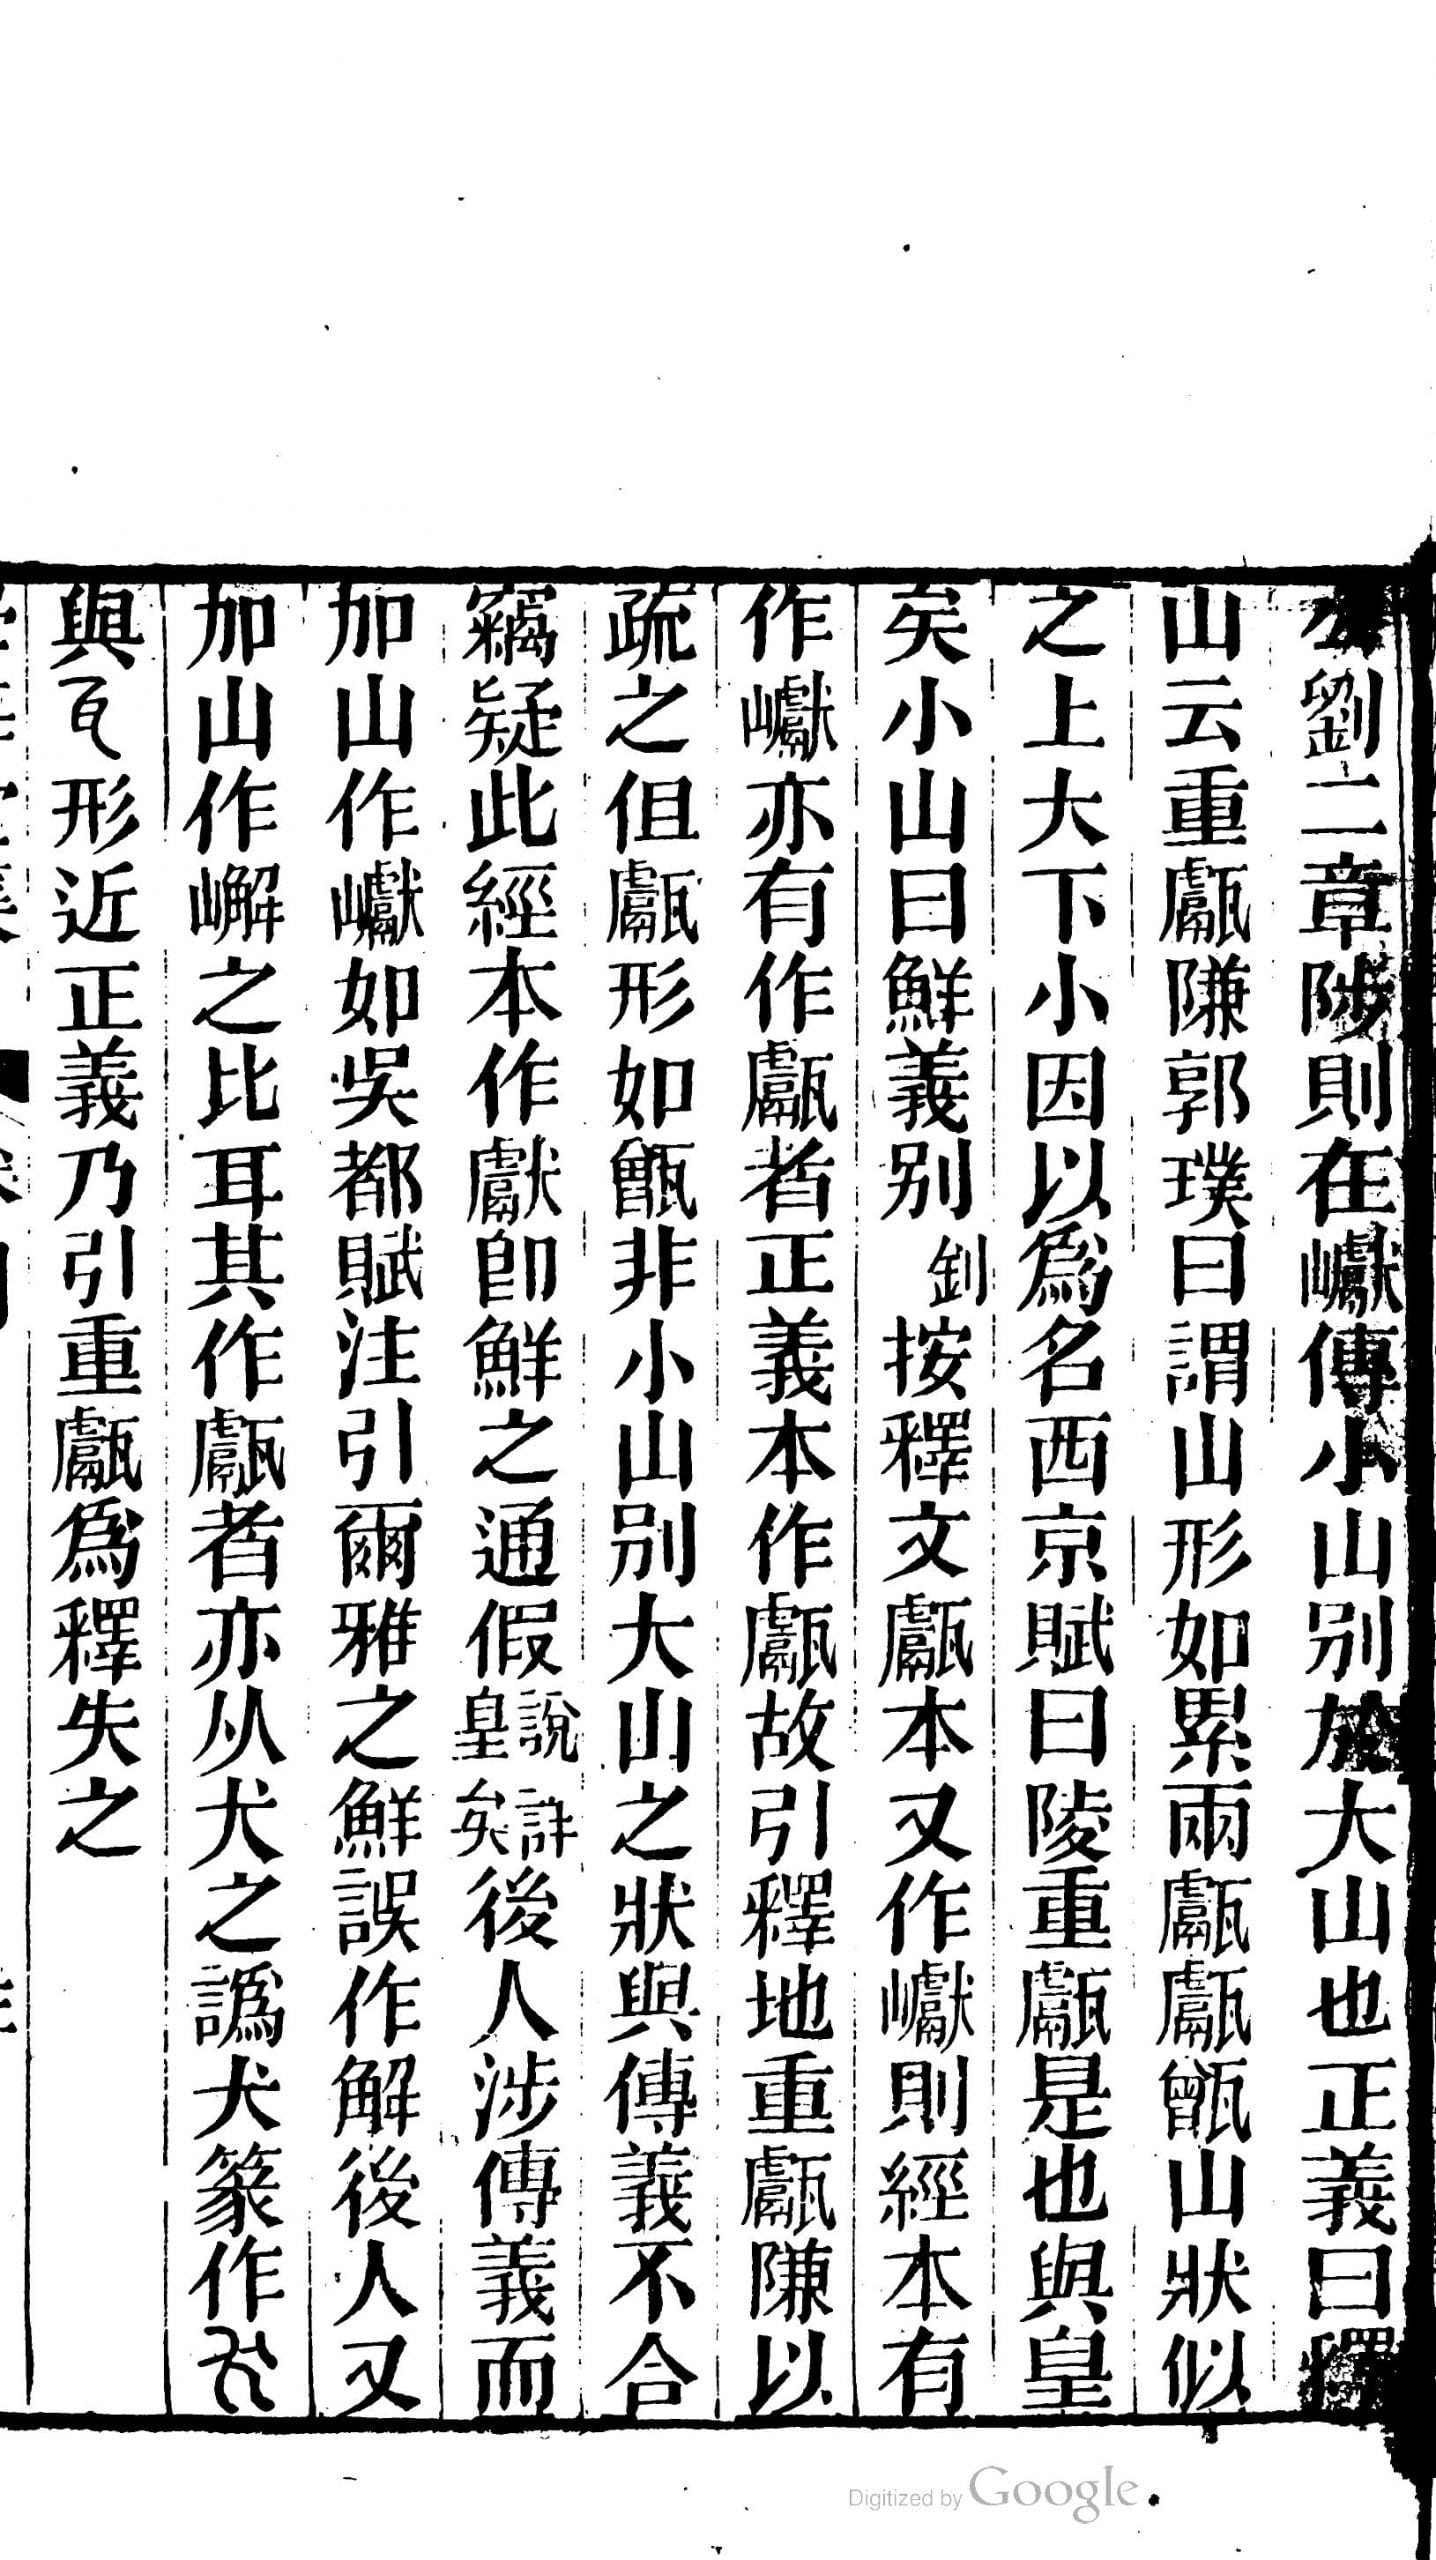 公劉二章陟則在巘傳小山別於大山也正義曰釋
山云重甗隒郭璞曰謂山形如累兩甗甗甑山狀似
之上大下小因以爲名西京賦曰陵重甗是也與皇
矣小山曰鮮義別釗按釋文甗本又作巘則經本有
作巘亦有作甗者正義本作甗故引釋地重甗隒以
疏之但甗形如甑非小山別大山之狀與傳義不合
竊疑此經本作獻卽鮮之通假說詳皇矣後人涉傳義而
加山作巘如吳都賦注引爾雅之鮮誤作解後人又
加山作嶰之比耳其作甗者亦从犬之譌犬篆作
與形近正義乃引重甗爲釋失之
Digitized by Google